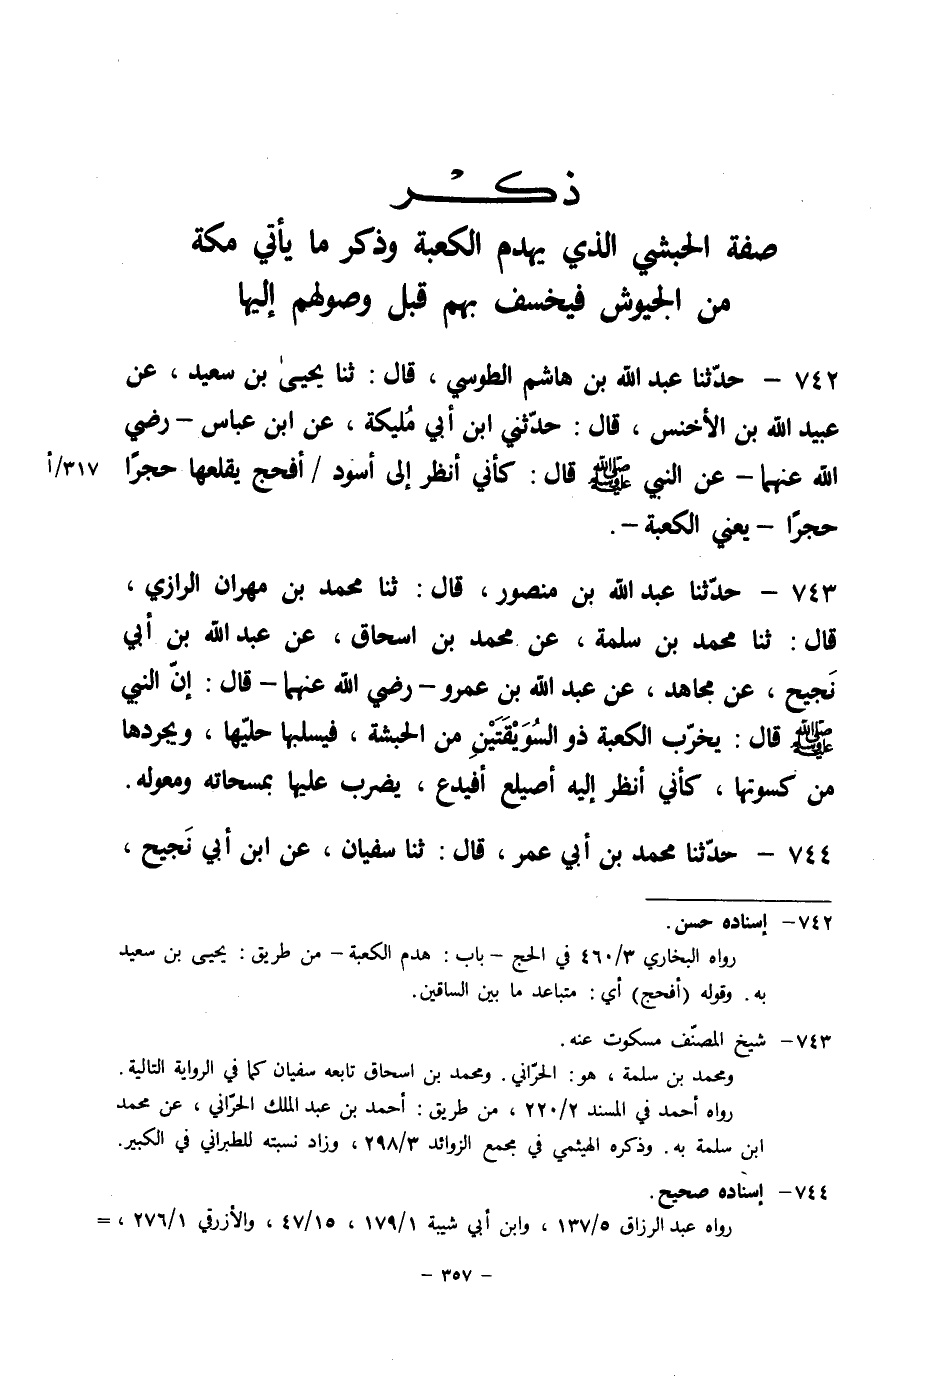 ذكر
صفة الحبشي الذي يهدم الكعبة وذكر ما يأتي مكة
من الجيوش فيخسف بهم قبل وصولهم إليها
٧٤٢ - حدّثنا عبد الله بن هاشم الطوسي ، قال : ثنا يحيىٰ بن سعيد ، عن
عبيد الله بن الأخنس ، قال : حدّثني ابن أبي مُليكة ، عن ابن عباس - رضي
الله عنهما - عن النبي ﷺ قال : كأني أنظر إلى أسود / أفحج يقلعها حجرًا ٣١٧/أ
حجرًا - يعني الكعبة - .
٧٤٣ - حدّثنا عبد الله بن منصور ، قال : ثنا محمد بن مهران الرازي ،
قال : ثنا محمد بن سلمة ، عن محمد بن اسحاق ، عن عبد الله بن أبي
نَجيح ، عن مجاهد ، عن عبد الله بن عمرو - رضي الله عنهما - قال : إنّ النبي
ﷺ قال : يخرّب الكعبة ذو السُوَيْقَتَيْنِ من الحبشة ، فيسلبها حليّها ، ويجردها
من كسوتها ، كأني أنظر إليه أصيلع أفيدع ، يضرب عليها بمسحاته ومعوله .
٧٤٤ - حدّثنا محمد بن أبي عمر ، قال : ثنا سفيان ، عن ابن أبي نَجيح ،
٧٤٢- إسناده حسن .
رواه البخاري ٤٦٠/٣ في الحج - باب : هدم الكعبة - من طريق : يحيى بن سعيد
به . وقوله (أفحج) أي : متباعد ما بين الساقين .
٧٤٣- شيخ المصنّف مسكوت عنه .
ومحمد بن سلمة ، هو : الحرّاني . ومحمد بن اسحاق تابعه سفيان كما في الرواية التالية .
رواه أحمد في المسند ٢٢٠/٢ ، من طريق : أحمد بن عبد الملك الحرّاني ، عن محمد
ابن سلمة به . وذكره الهيثمي في مجمع الزوائد ٢٩٨/٣ ، وزاد نسبته للطبراني في الكبير .
٧٤٤- إسناده صحيح .
رواه عبد الرزاق ١٣٧/٥ ، وابن أبي شيبة ١٧٩/١ ، ٤٧/١٥ ، والأزرقي ٢٧٦/١ ، =
- ٣٥٧ -